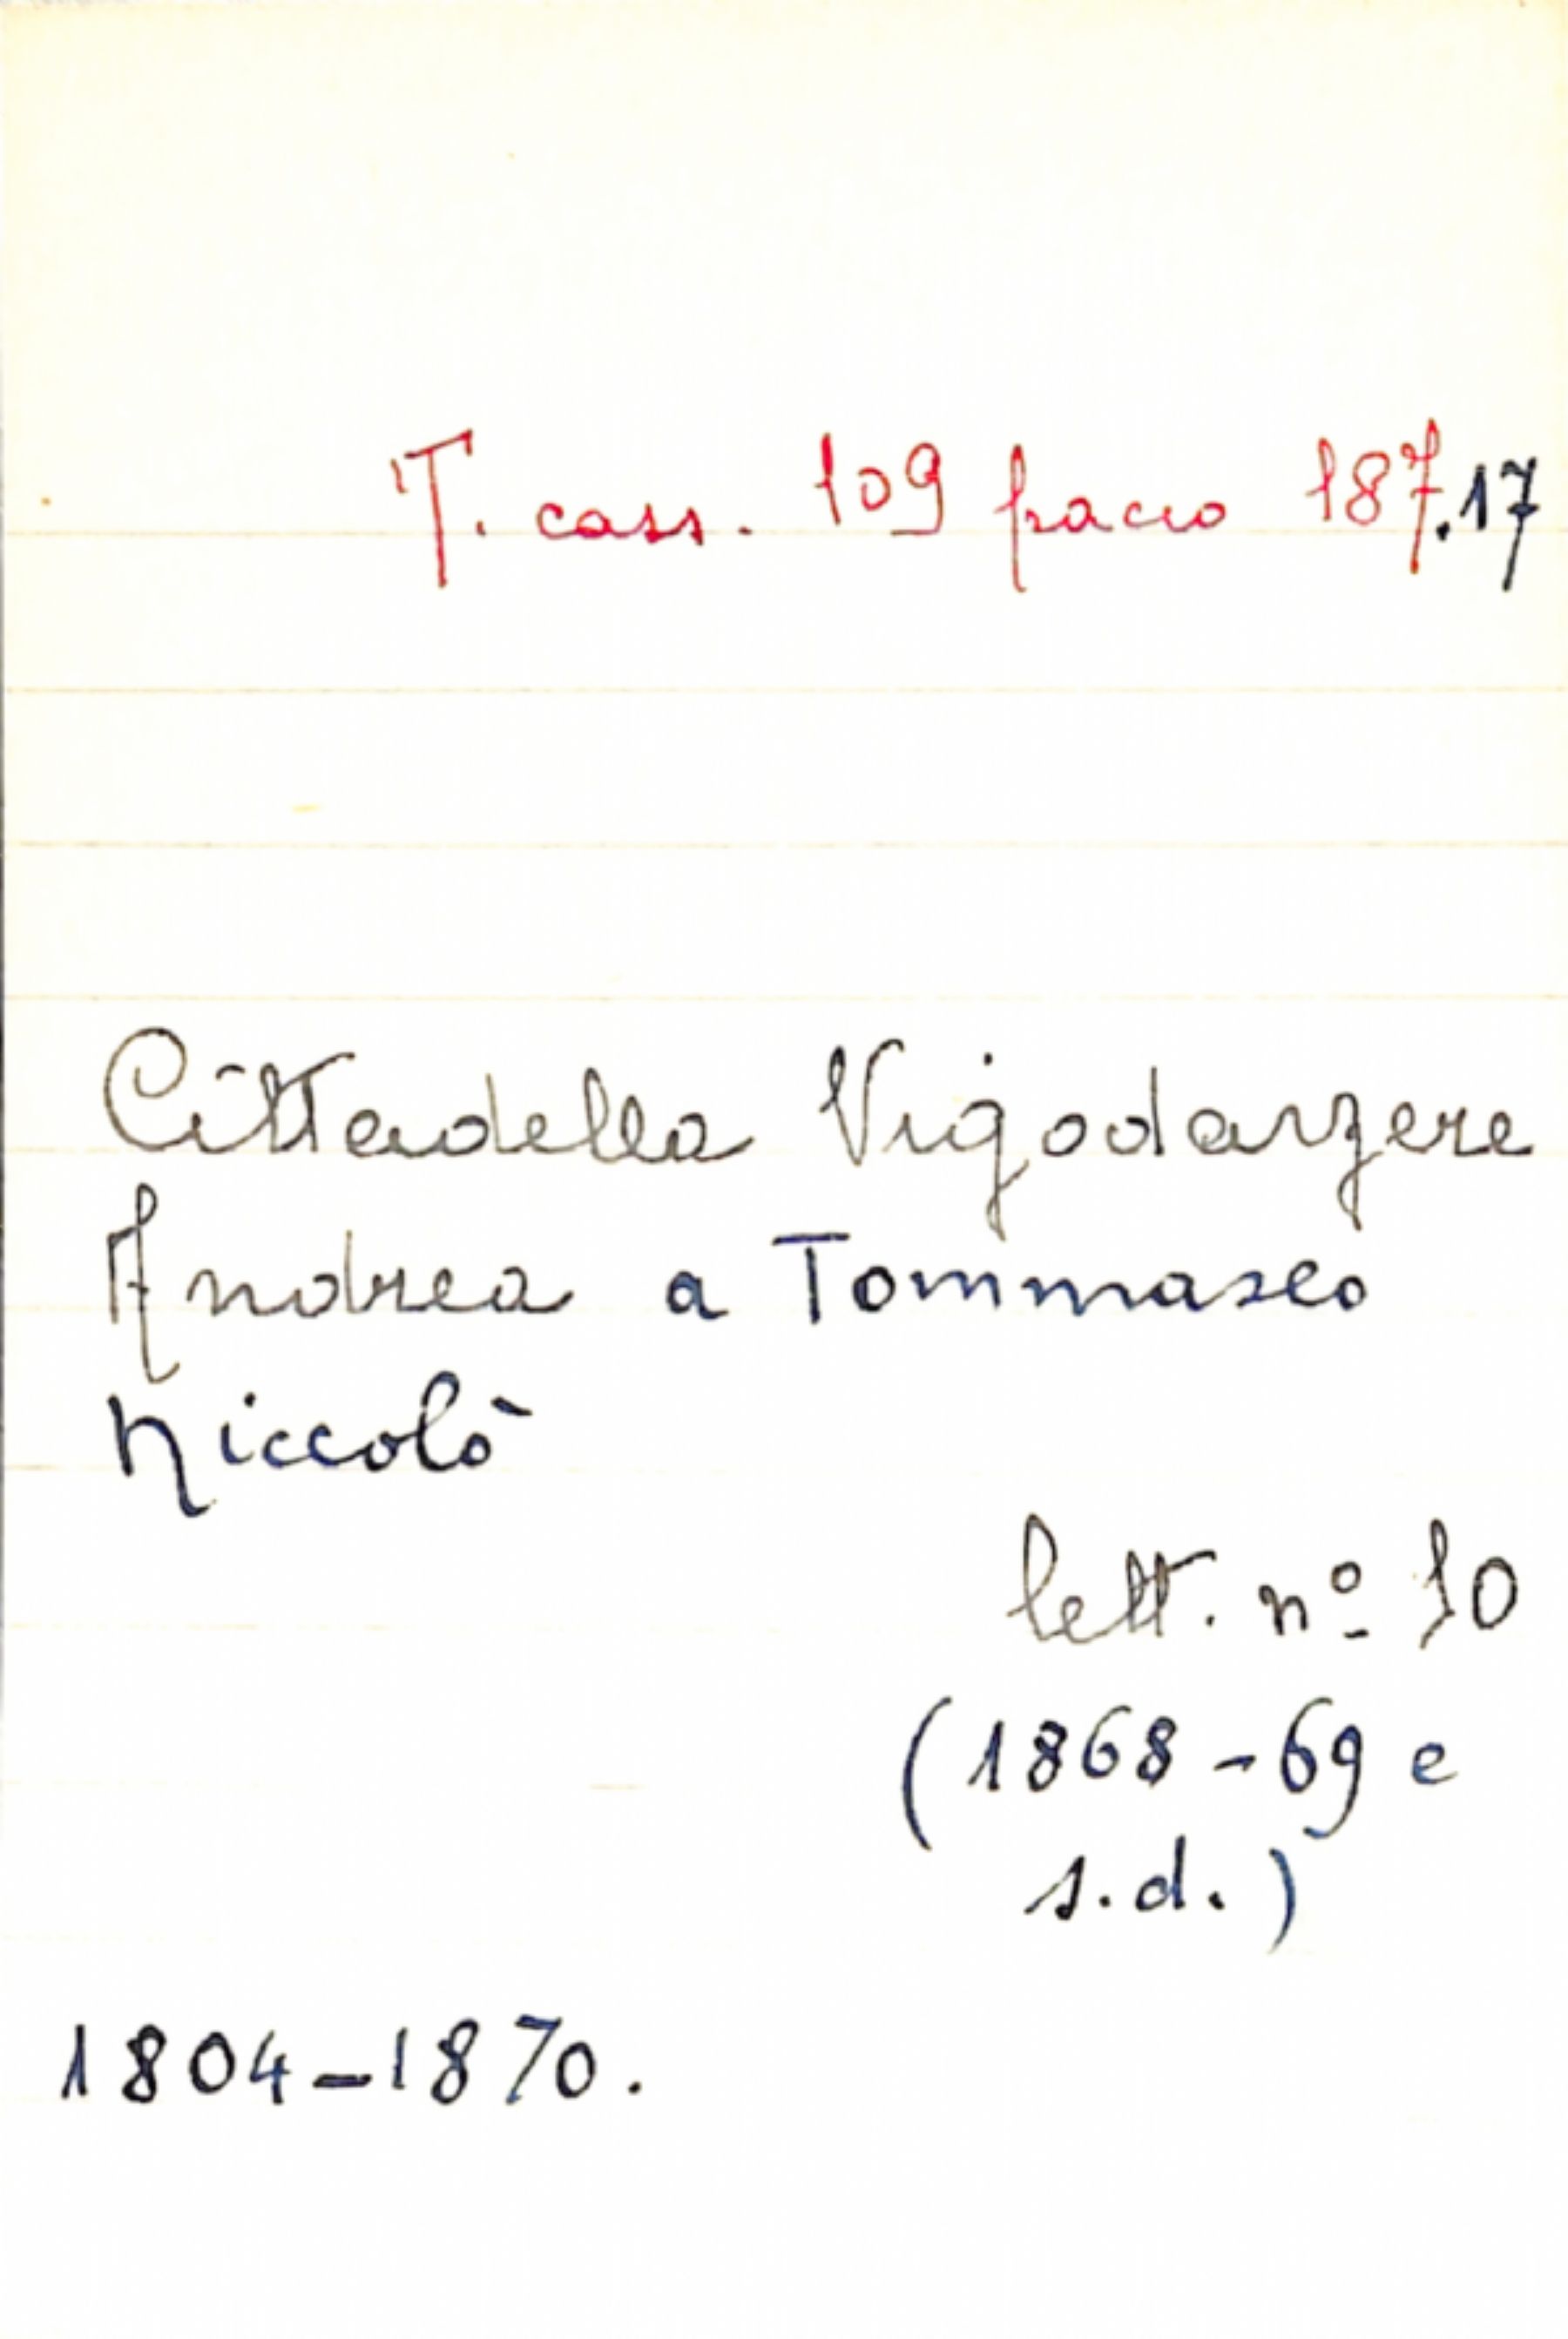 T. cass. 109 pacco 187.17
Cittadella Vigodarzere
Andrea a Tommaseo
Niccolò
lett. nº 10
(1868-69 e
s.d.)
1804-1870.